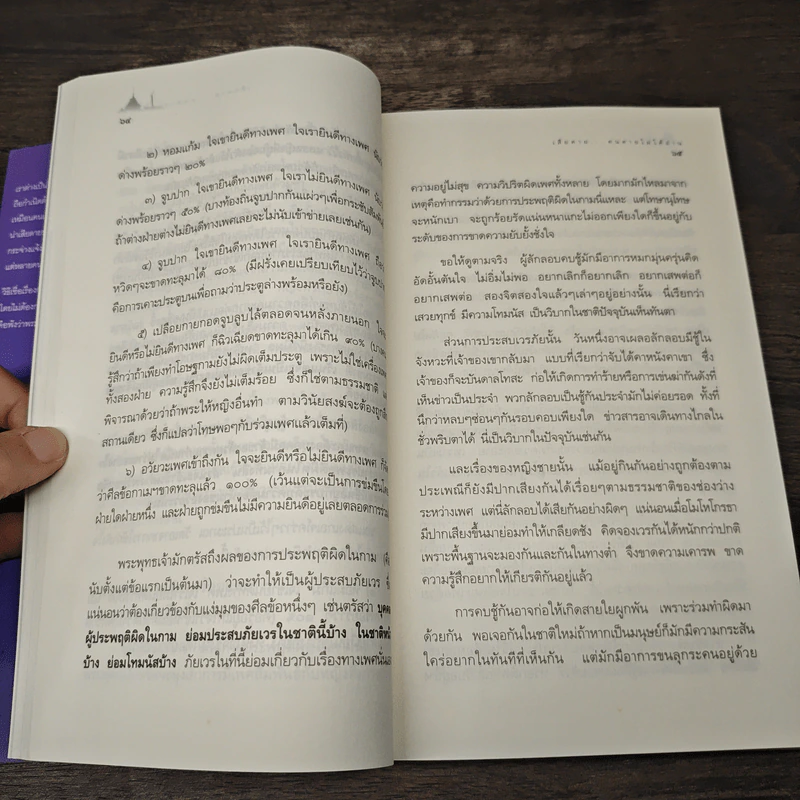 ๖๔
๒) หอมแก้ม ใจเขายินดีทางเพศ ใจเรายินดีทางเพศ
ด่างพร้อยราวๆ ๒๐%
๓) จูบปาก ใจเขายินดีทางเพศ ใจเราไม่ยินดีทางเพศ
ด่างพร้อยราวๆ ๕๐% (บางท้องถิ่นจูบปากกันแผ่วๆเพื่อกระชับสัมพันธ์
ถ้าต่างฝ่ายต่างไม่ยินดีทางเพศเลยจะไม่นับเข้าข่ายเลยเช่นกัน)
๔) จูบปาก ใจเขายินดีทางเพศ ใจเรายินดีทางเพศ
หวิดๆจะขาดทะลุมาได้ ๘๐% (มีฝรั่งเคยเปรียบเทียบไว้ว่าจูบปาก
คือการเคาะประตูบนเพื่อถามว่าประตูล่างพร้อมหรือยัง)
๕) เปลือยกายกอดจูบลูบไล้ตลอดจนหลั่งภายนอก
ยินดีหรือไม่ยินดีทางเพศ ก็ฉิวเฉียดขาดทะลุมาได้เกิน ๙๐%
รู้สึกว่าถ้าเพียงทำโอษฐกามยังไม่ผิดเต็มประตู เพราะไม่ใช่เครื่องเพศ
ทั้งสองฝ่าย ความรู้สึกจึงยังไม่เต็มร้อย ซึ่งก็ใช่ตามธรรมชาติ
พิจารณาด้วยว่าถ้าพระให้หญิงอื่นทำ ตามวินัยสงฆ์จะต้องถูก
สถานเดียว ซึ่งก็แปลว่าโทษพอๆกับร่วมเพศแล้วเต็มที่)
๖) อวัยวะเพศเข้าถึงกัน ใจจะยินดีหรือไม่ยินดีทางเพศ
ว่าศีลข้อกาเมฯขาดทะลุแล้ว ๑๐๐% (เว้นแต่จะเป็นการข่มขืนโดย
ฝ่ายใดฝ่ายหนึ่ง และฝ่ายถูกข่มขืนไม่มีความยินดีอยู่เลยตลอดการร่วม
พระพุทธเจ้ามักตรัสถึงผลของการประพฤติผิดในกาม
นับตั้งแต่ข้อแรกเป็นต้นมา) ว่าจะทำให้เป็นผู้ประสบภัยเวร
แน่นอนว่าต้องเกี่ยวข้องกับแง่มุมของศีลข้อหนึ่งๆ เช่นตรัสว่า บุคคล
ผู้ประพฤติผิดในกาม ย่อมประสบภัยเวรในชาตินี้บ้าง ในชาติหน้า
บ้าง ย่อมโทมนัสบ้าง ภัยเวรในที่นี้ย่อมเกี่ยวกับเรื่องทางเพศนั่นเอง
เสียดาย คนตายไม่ได้อ่าน
๖๕
ความอยู่ไม่สุข ความวิปริตผิดเพศทั้งหลาย โดยมากมักไหลมาจาก
เหตุคือทำกรรมว่าด้วยการประพฤติผิดในกามนี่แหละ แต่โทษานุโทษ
จะหนักเบา จะถูกร้อยรัดแน่นหนาแกะไม่ออกเพียงใดก็ขึ้นอยู่กับ
ระดับของการขาดความยับยั้งชั่งใจ
ขอให้ดูตามจริง ผู้ลักลอบคบชู้มักมีอาการหมกมุ่นครุ่นคิด
อัดอั้นตันใจ ไม่อิ่มไม่พอ อยากเลิกก็อยากเลิก อยากเสพต่อก็
อยากเสพต่อ สองจิตสองใจแล้วๆเล่าๆอยู่อย่างนั้น นี่เรียกว่า
เสวยทุกข์ มีความโทมนัส เป็นวิบากในชาติปัจจุบันเห็นทันตา
ส่วนการประสบเวรภัยนั้น วันหนึ่งอาจเผลอลักลอบมีชู้ใน
จังหวะที่เจ้าของเขากลับมา แบบที่เรียกว่าจับได้คาหนังคาเขา ซึ่ง
เจ้าของก็จะบันดาลโทสะ ก่อให้เกิดการทำร้ายหรือการเข่นฆ่ากันดังที่
เห็นข่าวเป็นประจำ พวกลักลอบเป็นชู้กันประจำมักไม่ค่อยรอด ทั้งที่
นึกว่าหลบๆซ่อนๆกันรอบคอบเพียงใด ข่าวสารอาจเดินทางไกลใน
ชั่วพริบตาได้ นี่เป็นวิบากในปัจจุบันเช่นกัน
และเรื่องของหญิงชายนั้น แม้อยู่กินกันอย่างถูกต้องตาม
ประเพณีก็ยังมีปากเสียงกันได้เรื่อยๆตามธรรมชาติของช่องว่าง
ระหว่างเพศ แต่นี่ลักลอบได้เสียกันอย่างผิดๆ แน่นอนเมื่อโมโหโกรธา
มีปากเสียงขึ้นมาย่อมทำให้เกลียดชัง คิดจองเวรกันได้หนักกว่าปกติ
เพราะพื้นฐานจะมองกันและกันในทางต่ำ จึงขาดความเคารพ ขาด
ความรู้สึกอยากให้เกียรติกันอยู่แล้ว
การคบชู้กันอาจก่อให้เกิดสายใยผูกพัน เพราะร่วมทำผิดมา
ด้วยกัน พอเจอกันในชาติใหม่ถ้าหากเป็นมนุษย์ก็มักมีความกระสัน
ใคร่อยากในทันทีที่เห็นกัน แต่มักมีอาการขนลุกระคนอยู่ด้วย